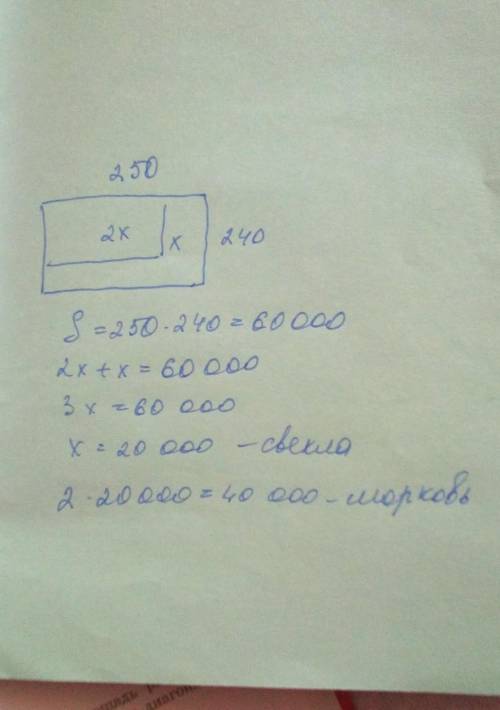 250
2x
x
240
S = 250 · 240 = 60 000
2x + x = 60 000
3x = 60 000
x = 20 000 – свекла
2 · 20 000 = 40 000 – морковь
диагона